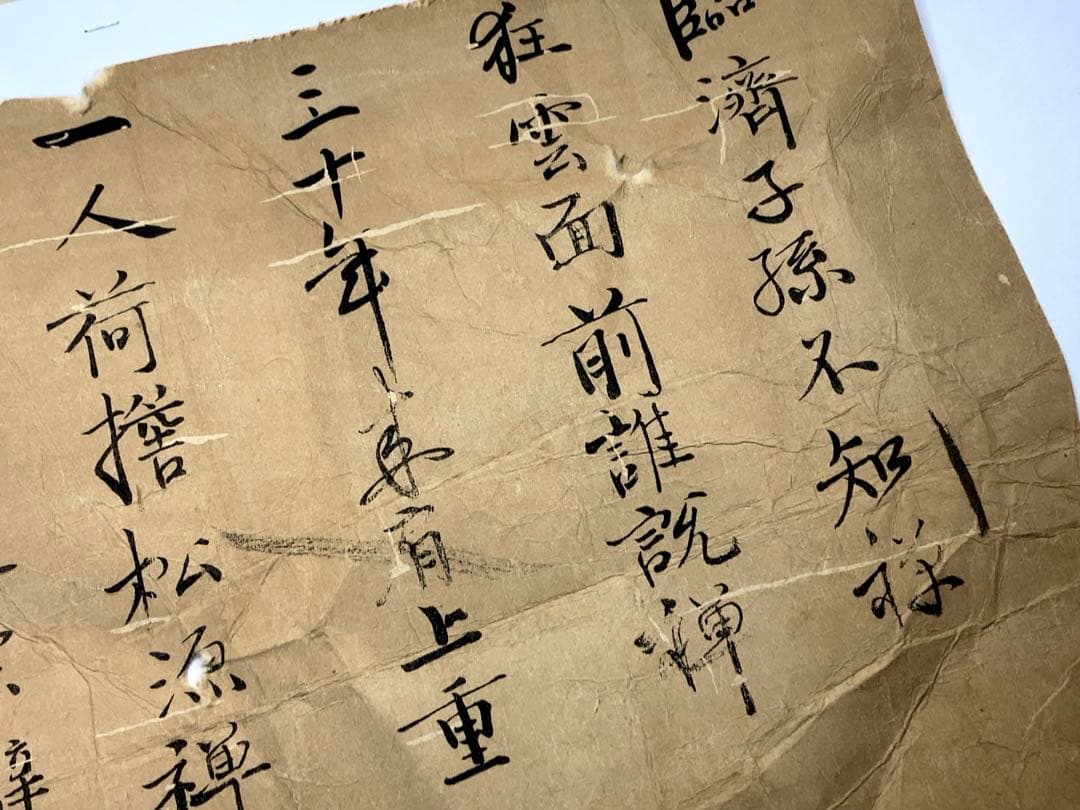 臨濟子孫不知禅
狂雲面前誰説禅
三十年来肩上重
一人荷擔松源禅